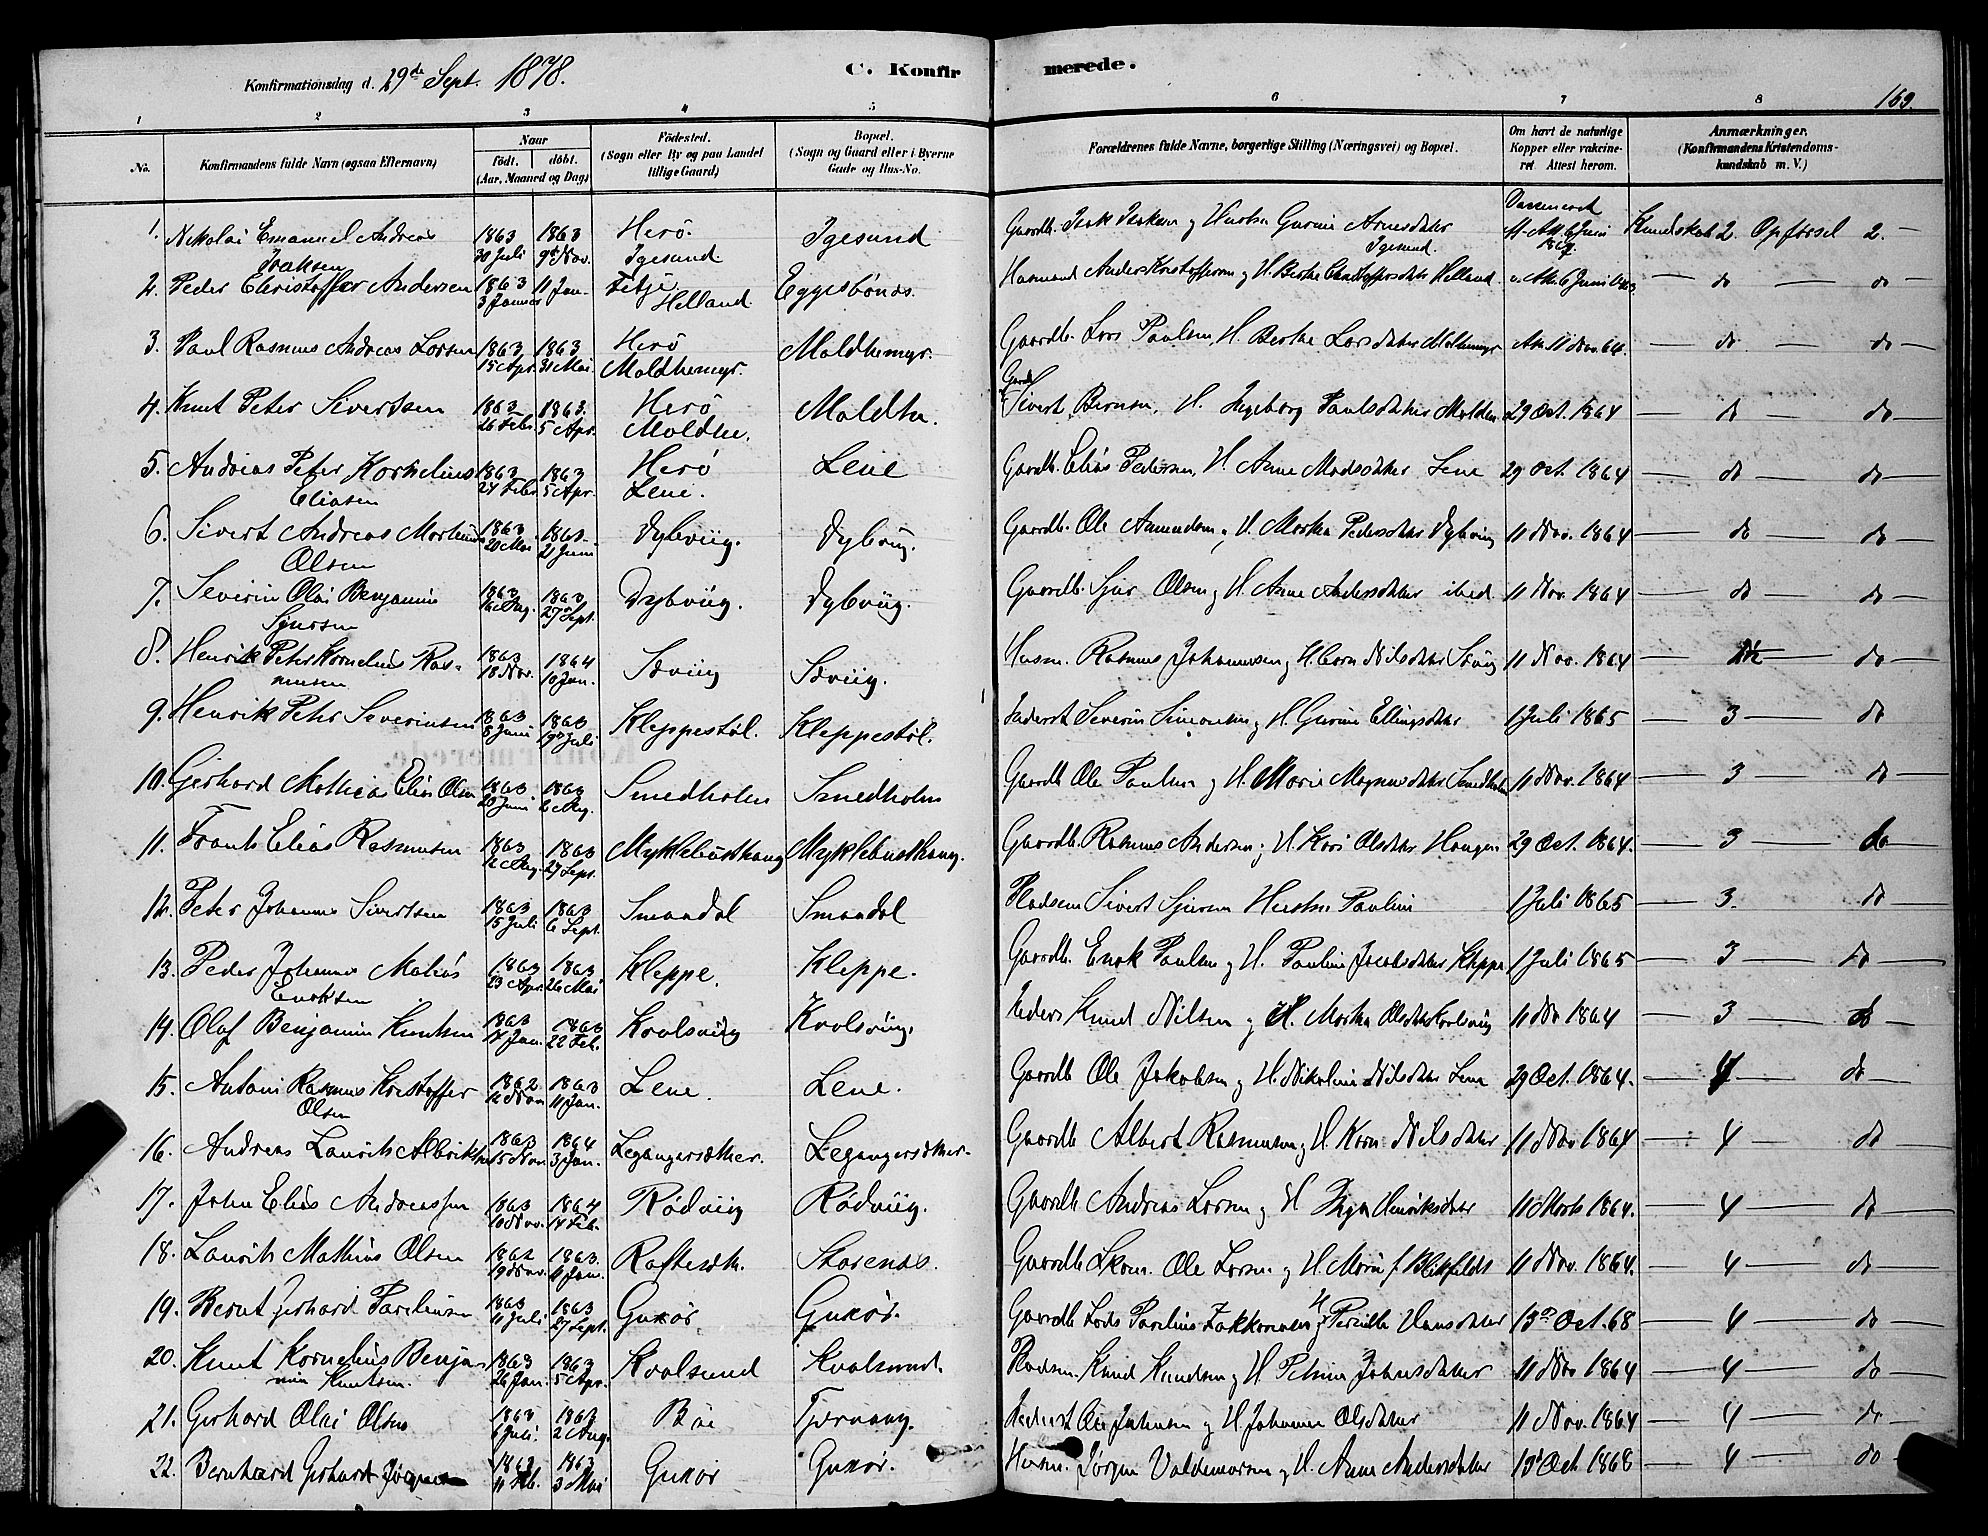 Konfirmationsdag d. 29de Sept. 1878. C. Konfirmerede. 169.
1 2 3 4 5 6 7 8
No. Konfirmandens fulde Navn (ogsaa Efternavn) Naar födt. döbt. (Aar, Maaned og Dag) Födested. (Sogn eller By og paa Landet tillige Gaard) Bopæl. (Sogn og Gaard eller i Byerne Gade og Hus-No. Forældrenes fulde Navne, borgerlige Stilling (Næringsvei) og Bopæl. Om havt de naturlige Kopper eller vakcineret. Attest herom. Anmærkninger. (Konfirmandens Kristendomskundskab m. V.)
1. Nikolai Emanuel Andreas Isaksen 1863 20 Juli 1863 9de Nov. Herö. Igesund Igesund Gaardb. Isak Isaksen og Hustru Gurine Arnesdatter Igesund Vaccineret Kundskab 2. Opförsel 2.
2. Peder Christoffer Andersen 1863 3 Januar 11 Jan. Helland Eggesbönes. Husmand Anders Kristoffersen og H. Berthe Christoffersdatter Helland. do do
3. Paul Rasmus Andreas Larsen 1863 15 Apr. 1863 31 Mai. Herö Moldhemyr. Moldhemyr. Gaardb. Lars Paulsen, H. Berthe Larsdatter Moldhemyr Att. 11 Nov. 64. do do
4. Knut Peter Sivertsen 1863 26 Febr. 1863. 5 Apr. Herö Moldhe. Moldhe. Gaardb. Sivert Bernsen, H. Ingeborg Paulsdatter Moldhe 29 Oct. 1864 do do
5. Andreas Peter Kornelius Eliasen 1863 24 Febr. 1863 5 Apr. Herö Lene. Lene Gaardb. Elias Pedersen, H. Anne Madsdatter Lene 29 Oct. 1864 do do
6. Sivert Andreas Martinus Olsen 1863 20 Mai 1863. 21 Juni Dybviig. Dybviig. Gaardb. Ole Amundsen, H. Martha Pedersdatter Dybviig 11 Nov. 1864 do do
7. Severin Olai Benjamin Sjursen 1863 16 Aug. 1863. 27 Sept. Dybviig. Dybviig. Gaardb. Sjur Olsen og H. Anne Andersdatter ibid 11 Nov. 1864 do do
8. Henrik Peter Kornelius Rasmussen 1863 18 Nov. 1864 10 Jan. Sæviig Sæviig. Husm. Rasmus Johannesen og H. Nilsdatter Sæviig 11 Nov. 1864 do
9. Henrik Peter Severinsen 1863 8 Juni 1863 19de Juli Kleppestöl. Kleppestöl. Inderst Severin Simonsen og H. Gurine Ellingsdatter 1 Juli 1865 3 do
10. Gerhard Mathias Elias Olsen 1863 20 Juni 1863 2 Aug. Smedholm Smedholm Gaardb. Ole Paulsen og H. Marie Magnusdatter Smedholm 11 Nov. 1864 3 do
11. Frants Elias Rasmusen 1863 12 Aug. 1863 27 Sept. Myklebusthaug Myklebusthaug. Gaardb. Rasmus Andersen og H. Kari Olsdatter Haugen 29 Oct. 1864. 3 do
12. Peter Johannes Sivertsen 1863 15 Juli 1863 6 Sept. Smaadal Smaadal Pladsem Sivert Sjursen Hustru Pauline 1 Juli 1865 3. do
13. Peder Johannes Matias Enoksen 1863 23 Apr. 1863 26 Mai Kleppe. Kleppe. Gaardb. Enok Paulsen og H. Pauline Jacobsdatter Kleppe 1 Juli 1865 3 do
14. Olaf Benjamin Knutsen 1863 17 Jan. 1863 22 Feb. Kvalsviig Kvalsviig. Inders Knud Nilsen og H. Martha Olsdatter Kvalsviig 11 Nov 1864 3 do
15. Antoni Rasmus Kristoffer Olsen 1862 12 Nov. 1863 11 Jan. Lene. Lene. Gaardb. Ole Jakobsen og H. Nikoline Nilsdatter Lene 29 Oct. 1864. 4 do
16. Andreas Laurits Albriktsen 1863 15 Nov. 1864 3 Jan. Legangersæther. Legangersæther. Gaardb. Albert Rasmusen og H. Karn Nilsdatter 11 Nov 1864 4 do
17. John Elias Andreassen 1863 10 Nov. 1864 14 Feb. Rödviig Rödviig. Gaardb. Andreas Larsen og H. Inger Henriksdatter 11 Marts 1864. 4 do
18. Laurits Mathias Olsen 1862 19 Nov. 1863. 11 Jan. Raftesæth. Storenæs. Gaardb. Skom. Ole Larsen og H. Marie f. Blikfeldt 11 Nov. 1864. 4 do
19. Bernt Gerhard Parelinsen 1863 11 Juli 1863 27 Sept. Gurskø. Gurskø. Gaardb. Lods Parelius Zakkarias og H. Pernille Hansdatter 13de Oct. 68 4 do
20. Knut Kornelius Benjamin Knutsen. 1863 26 Jan. 1863 5 Apr. Kvalsund Kvalsund. Pladsm. Knud Knudsen og H. Petrine Johnsdatter 11 Nov 1864 4 do
21. Gerhard Olai Olsen 1863 6 Juli. 1863 2 Aug. Böe Tjørvaag. Inderst Ole Johnsen og H Johanne Olsdatter 11 Nov. 1864 4 do
22. Bernhard Gerhard Jörgensen 1863 11 Feb. 1863 3 Mai Gurskø Gurskø. Husm. Jörgen Valdemarsen og H. Anne Andersdatter 13de Oct. 1868 4 do